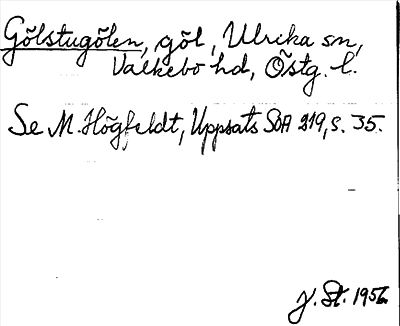 Gölstugölen, göl, Ulrika sn,
Valkebo hd, Östg. l.
Se M. Högfeldt, Uppsats SOA 219, s. 35.
J. St. 1956.